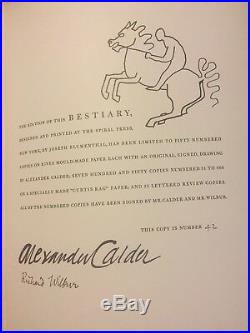 THE EDITION OF THIS BESTIARY,
DESIGNED AND PRINTED AT THE SPIRAL PRESS,
NEW YORK, BY JOSEPH BLUMENTHAL, HAS BEEN LIMITED TO FIFTY NUMBERED
COPIES ON RIVES MOULD-MADE PAPER EACH WITH AN ORIGINAL, SIGNED, DRAWING
BY ALEXANDER CALDER; SEVEN HUNDRED AND FIFTY COPIES NUMBERED 51 TO 800
ON A SPECIALLY MADE "CURTIS RAG" PAPER; AND 25 LETTERED REVIEW COPIES.
ALL OF THE NUMBERED COPIES HAVE BEEN SIGNED BY MR. CALDER AND MR. WILBUR.
THIS COPY IS NUMBER 42
Alexander Calder
Richard Wilbur